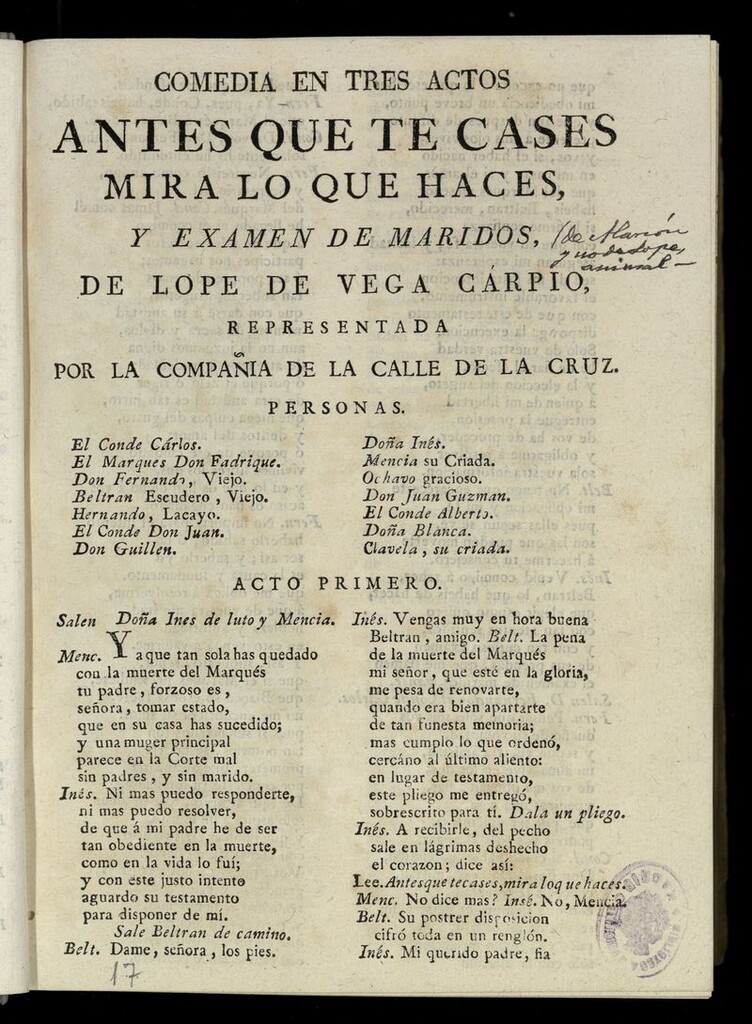 COMEDIA EN TRES ACTOS
ANTES QUE TE CASES
MIRA LO QUE HACES,
Y EXAMEN DE MARIDOS,
(de Alarcón
y no de Lope,
animal —
DE LOPE DE VEGA CÁRPIO,
REPRESENTADA
POR LA COMPAÑIA DE LA CALLE DE LA CRUZ.
PERSONAS.
El Conde Cárlos.
El Marques Don Fadrique.
Don Fernando, Viejo.
Beltran Escudero, Viejo.
Hernando, Lacayo.
El Conde Don Juan.
Don Guillen.
Doña Inés.
Mencia su Criada.
Ochavo gracioso.
Don Juan Guzman.
El Conde Alberto.
Doña Blanca.
Clavela, su criada.
ACTO PRIMERO.
Salen Doña Ines de luto y Mencia.
Menc. Ya que tan sola has quedado
con la muerte del Marqués
tu padre, forzoso es,
señora, tomar estado,
que en su casa has sucedido;
y una muger principal
parece en la Corte mal
sin padres, y sin marido.
Inés. Ni mas puedo responderte,
ni mas puedo resolver,
de que á mi padre he de ser
tan obediente en la muerte,
como en la vida lo fuí;
y con este justo intento
aguardo su testamento
para disponer de mí.
Sale Beltran de camino.
Belt. Dame, señora, los pies.
17
Inés. Vengas muy en hora buena
Beltran, amigo. Belt. La pena
de la muerte del Marqués
mi señor, que esté en la gloria,
me pesa de renovarte,
quando era bien apartarte
de tan funesta memoria;
mas cumplo lo que ordenó,
cercáno al último aliento:
en lugar de testamento,
este pliego me entregó,
sobrescrito para tí. Dala un pliego.
Inés. A recibirle, del pecho
sale en lágrimas deshecho
el corazon; dice así:
Lee. Antes que te cases, mira lo que haces.
Menc. No dice mas? Insé. No, Mencia.
Belt. Su postrer disposicion
cifró toda en un renglón.
Inés. Mi querido padre, fia